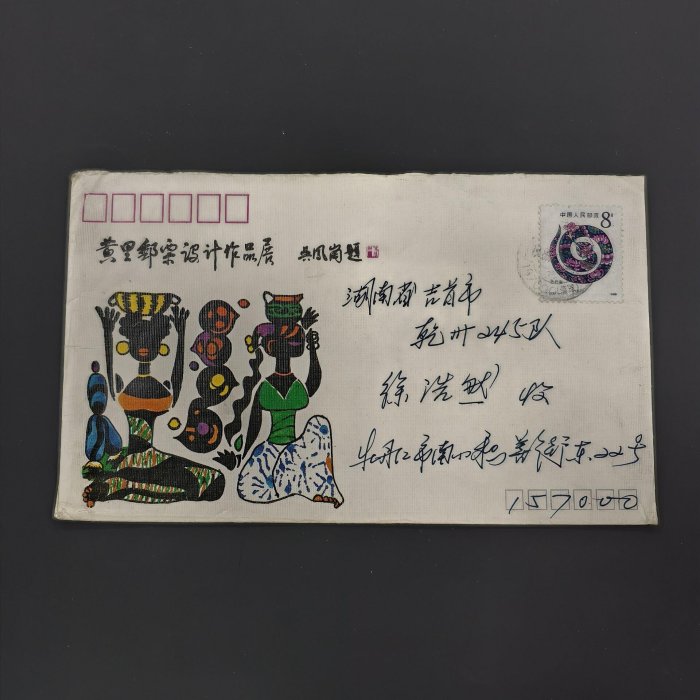 黄里郵票设计作品展 吴凤岗题
中国人民邮政 8分
湖南省吉首市
乾州245队
徐浩然 收
牡丹江市南 善街东.22号
157000